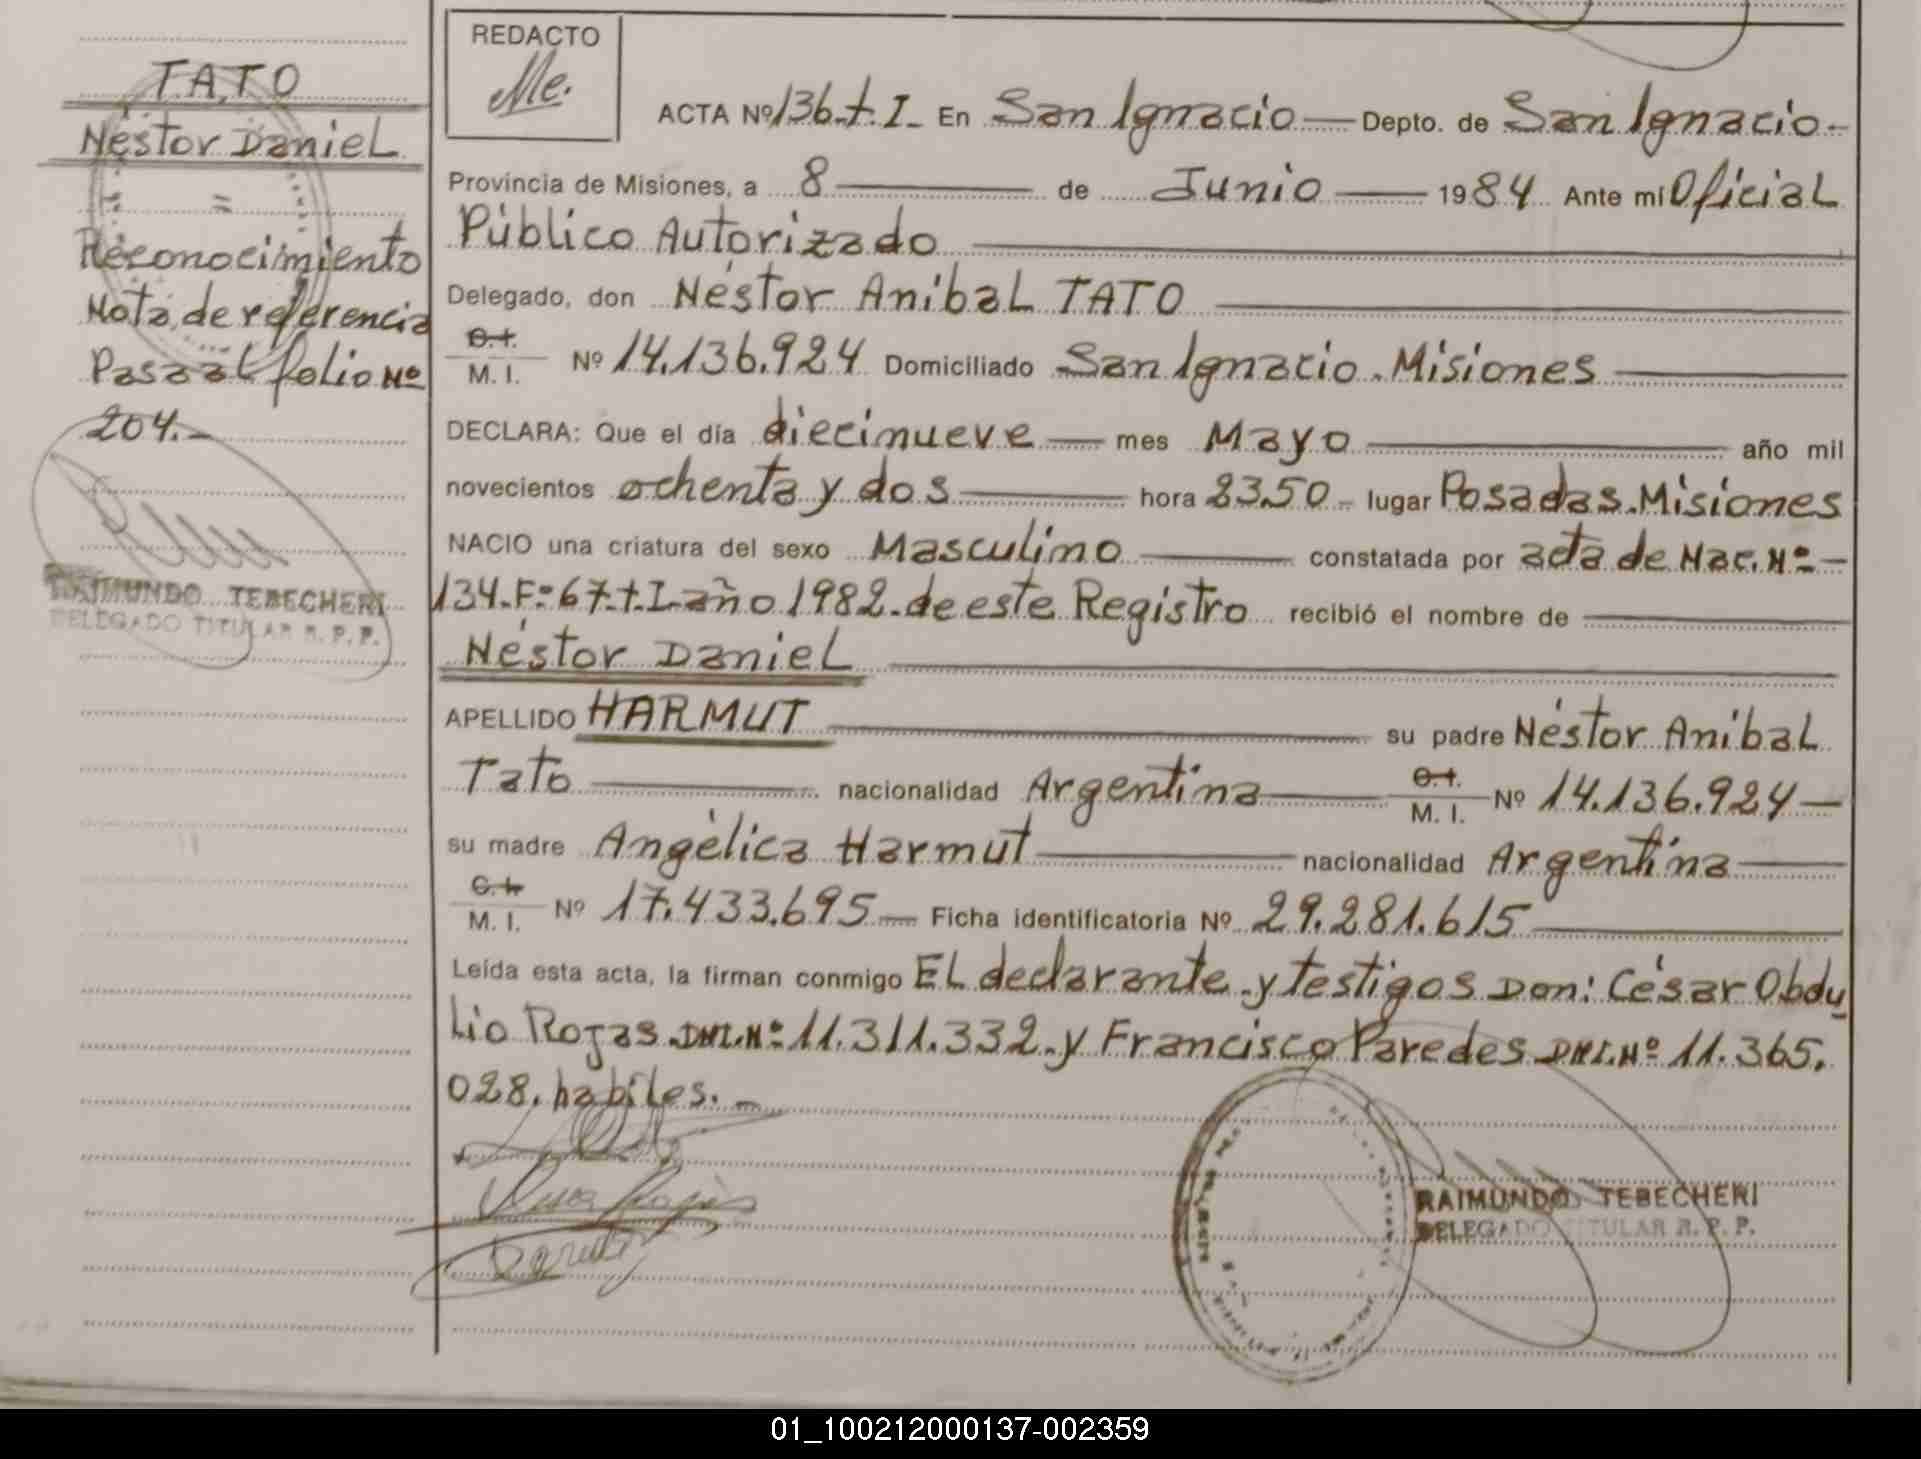 TATO
Néstor Daniel
=
Reconocimiento
Nota de referencia
Pasa al folio Nº
204.-
RAIMUNDO TEBECHERI
DELEGADO TITULAR R. P. P.
REDACTO
Me.
ACTA Nº 136-t. I- En San Ignacio — Depto. de San Ignacio-
Provincia de Misiones, a 8 — de Junio — 1984 Ante mí Oficial
Público Autorizado
Delegado, don Néstor Aníbal TATO
C.I. / M. I. Nº 14.136.924 Domiciliado San Ignacio. Misiones
DECLARA: Que el día diecinueve — mes Mayo — año mil
novecientos ochenta y dos — hora 23.50 - lugar Posadas. Misiones
NACIO una criatura del sexo Masculino — constatada por acta de Nac. Nº-
134-Fº 67-t.I-año 1982- de este Registro recibió el nombre de
Néstor Daniel
APELLIDO HARMUT — su padre Néstor Aníbal
Tato — nacionalidad Argentina — C.I. / M. I. Nº 14.136.924 —
su madre Angélica Harmut — nacionalidad Argentina —
C.I. / M. I. Nº 17.433.695 — Ficha identificatoria Nº 29.281.615
Leída esta acta, la firman conmigo El declarante y testigos Don: César Obdu
lio Rojas DNI. Nº 11.311.332. y Francisco Paredes DNI. Nº 11.365.
028. habiles. -
RAIMUNDO TEBECHERI
DELEGADO TITULAR R. P. P.
01_100212000137-002359